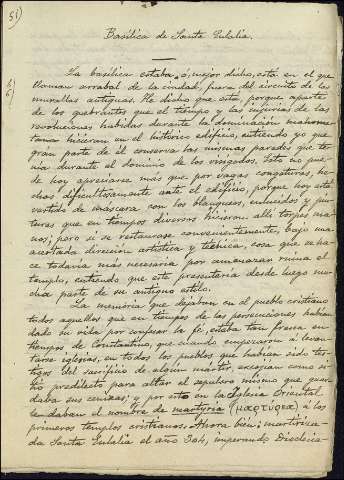 51
Basílica de Santa Eulalia.
La basílica estaba ó, mejor dicho, está en el que
llaman arrabal de la ciudad, fuera del circuito de las
murallas antiguas. He dicho que está, porque aparte
de los quebrantos que el tiempo y las injurias de las
revoluciones habidas durante la dominación mahome-
tana hicieran en el histórico edificio, entiendo yo que
gran parte de él conserva las mismas paredes que te-
nía durante el dominio de los visigodos. Esto no pue-
de hoy apreciarse más que por vagas conjeturas, he-
chas dificultosamente ante el edificio, porque hoy está
vestido de máscara con los blanqueos, enlucidos y pin-
turas que en tiempos diversos hicieron allí torpes ma-
nos; pero si se restaurase convenientemente, bajo una
acertada dirección artística y técnica, cosa que se ha-
ce todavía más necesaria por amenazar ruina el
templo, entiendo que este presentaría desde luego mu-
cha parte de su antiguo estilo.
La memoria que dejaban en el pueblo cristiano
todos aquellos que en tiempos de las persecuciones habían
dado su vida por confesar la fe, estaba tan fresca en
tiempos de Constantino, que cuando empezaron á levan-
tarse iglesias, en todos los pueblos que habían sido tes-
tigos del sacrificio de algún mártir, escogían como si-
tio predilecto para altar el sepulcro mismo que guar-
daba sus cenizas; y por esto en la Iglesia Oriental
se daban el nombre de martyria (μαρτύρια) á los
primeros templos cristianos. Ahora bien; martiriza-
da Santa Eulalia el año 304, imperando Dioclecia-